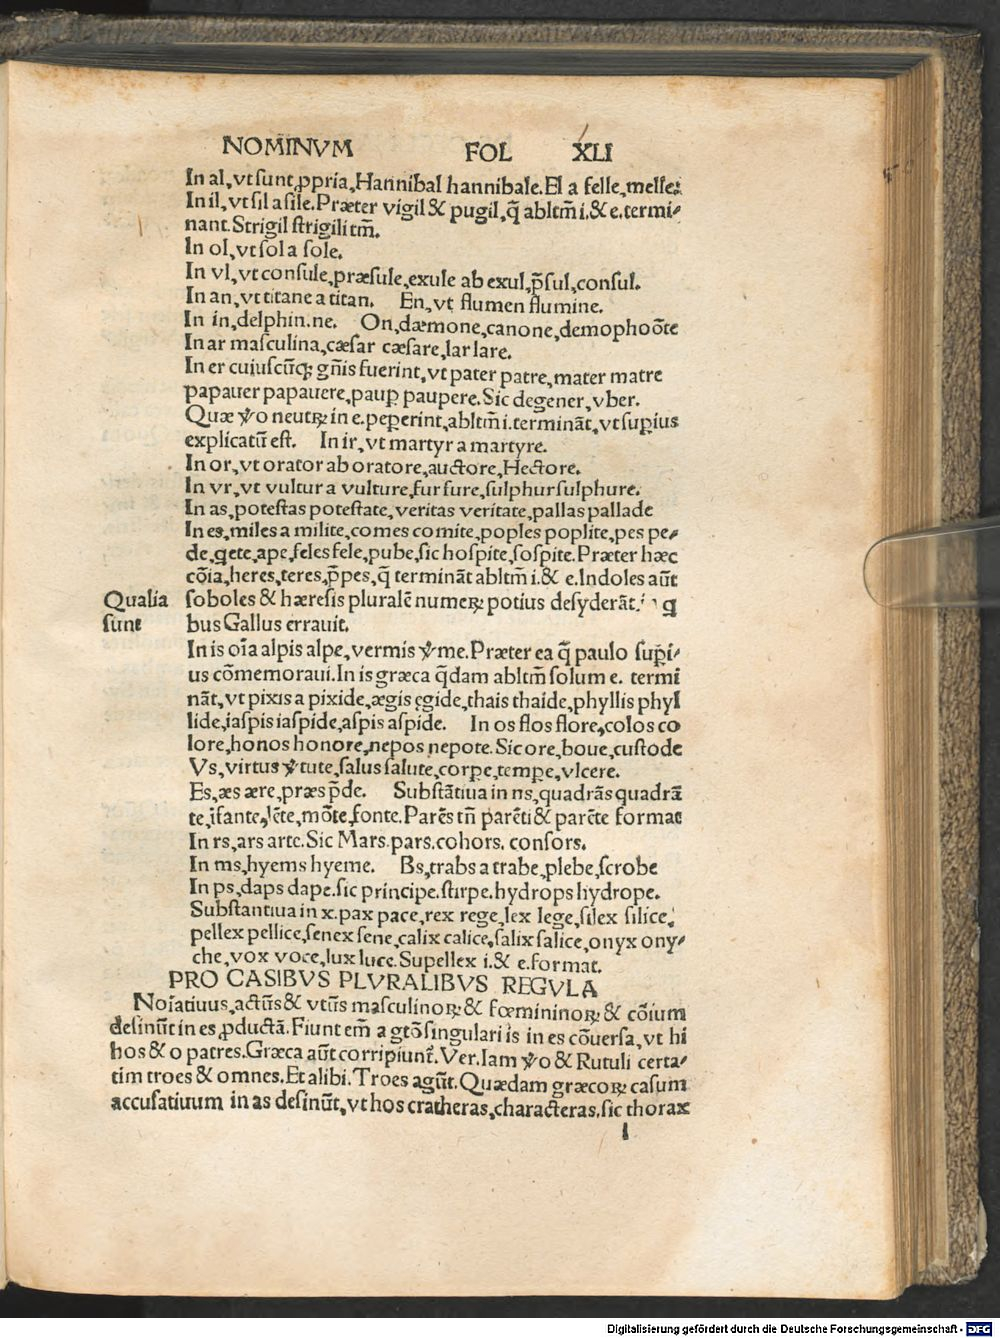 NOMINVM FOL XLI
In al, vt sunt ꝓpria, Hannibal hannibale. El a felle, melle.
In il, vt sil a sile. Præter vigil & pugil, q̃ abltm̃ i. & e. termi⸗
nant. Strigil strigili tm̃.
In ol, vt sol a sole.
In vl, vt consule, præsule, exule ab exul, p̃sul, consul.
In an, vt titane a titan. En, vt flumen flumine.
In in, delphin. ne. On, dæmone, canone, demophoõte
In ar masculina, cæsar cæsare, lar lare.
In er cuiuscũqꝫ gñis fuerint, vt pater patre, mater matre
papauer papauere, paup̲ paupere. Sic degener, vber.
Quæ ỽo neutrꝝ in e. pep̲erint, abltm̃ i. terminãt, vt sup̲ius
explicatũ est. In ir, vt martyr a martyre.
In or, vt orator ab oratore, auctore, Hectore.
In vr, vt vultur a vulture, fur fure, sulphur sulphure.
In as, potestas potestate, veritas veritate, pallas pallade
In es, miles a milite, comes comite, poples poplite, pes pe⸗
de, q̲ete, ape, feles fele, pube, sic hospite, sospite. Præter hæc
cõia, heres, teres, p̃pes, q̃ terminãt abltm̃ i. & e. Indoles aũt
Qualia soboles & hæresis pluralẽ numeꝝ potius desyderãt. i q
sunt bus Gallus errauit.
In is oĩa alpis alpe, vermis ỽme. Præter ea q̃ paulo sup̲i⸗
us cõmemoraui. In is græca q̃dam abltm̃ solum e. termi
nãt, vt pixis a pixide, ægis ęgide, thais thaide, phyllis phyl
lide, iaspis iaspide, aspis aspide. In os flos flore, colos co
lore, honos honore, nepos nepote. Sic ore, boue, custode
Vs, virtus ỽtute, salus salute, corpe, tempe, vlcere.
Es, æs ære, præs p̃de. Substãtiua in ns, quadrãs quadrã
te, ĩfante, lẽte, mõte, fonte. Parẽs tñ parẽti & parẽte format
In rs, ars arte. Sic Mars. pars. cohors. consors.
In ms, hyems hyeme. Bs, trabs a trabe, plebe, scrobe
In ps, daps dape. sic principe. stirpe. hydrops hydrope.
Substantiua in x. pax pace, rex rege, lex lege, silex silice,
pellex pellice, senex sene, calix calice, salix salice, onyx ony⸗
che, vox voce, lux luce. Supellex i. & e. format.
PRO CASIBVS PLVRALIBVS REGVLA
Noĩatiuus, actũs & vtũs masculinoꝝ & fœmininoꝝ & cõium
desinũt in es, ꝓductã. Fiunt em̃ a gtõ singulari is in es cõuersa, vt hi
hos & o patres. Græca aũt corripiunt̃. Ver. Iam ỽo & Rutuli certa⸗
tim troes & omnes. Et alibi. Troes agũt. Quædam græcoꝝ casum
accusatiuum in as desinũt, vt hos cratheras, characteras, sic thorax
l
Digitalisierung gefördert durch die Deutsche Forschungsgemeinschaft - DFG